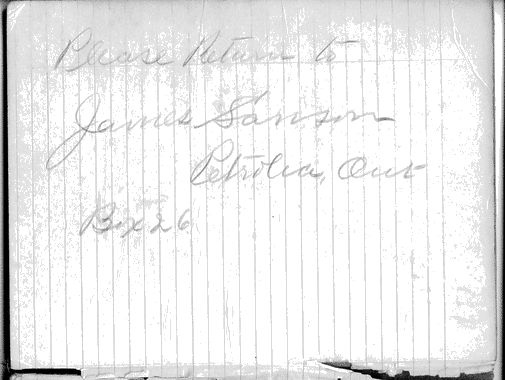 Please Return to
James Sanson
Petrolia, Ont
Box 26